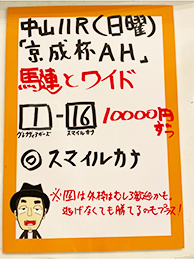 中山11R(日曜)
「京成杯AH」
馬連とワイド
1-16 10000円ずつ
グレナディアガーズ スマイルカナ
◎スマイルカナ
※16は外枠はむしろ歓迎かも。
逃げなくても勝てるのもプラス!